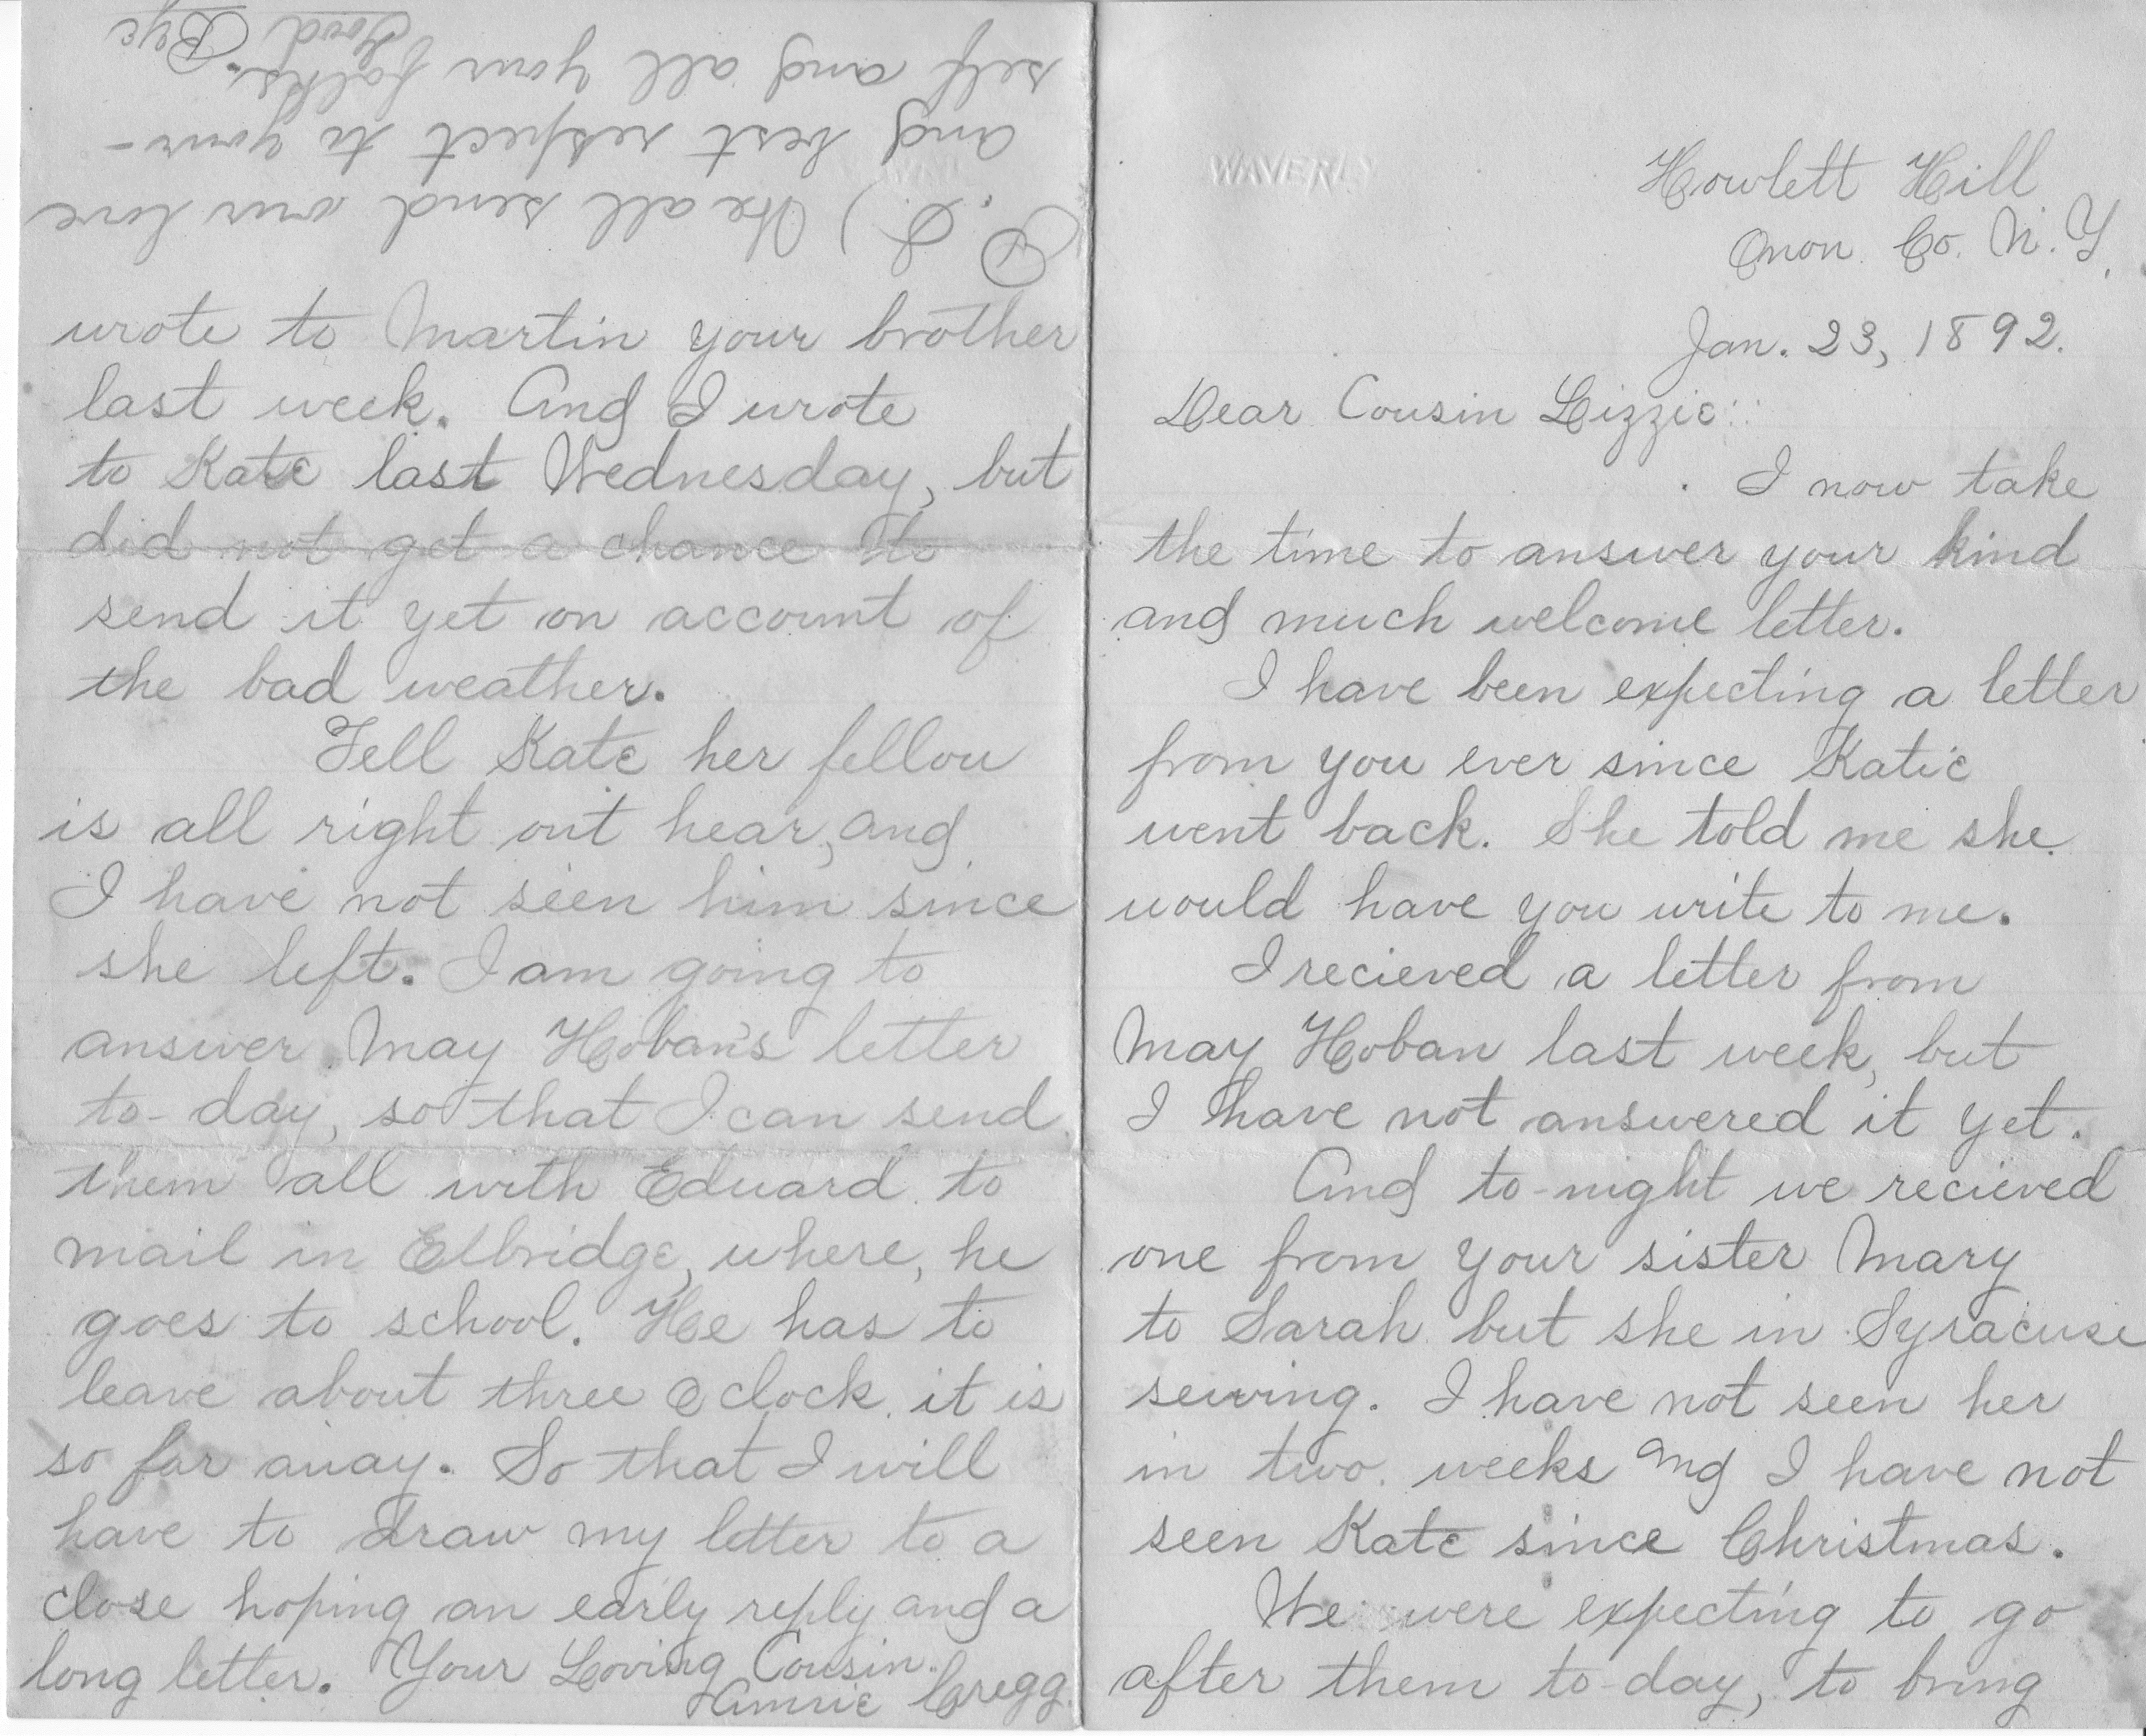 WAVERLY
Howlett Hill
Onon. Co. N. Y.
Jan. 23, 1892.
Dear Cousin Lizzie::
I now take
the time to answer your kind
and much welcome letter.
I have been expecting a letter
from you ever since Katie
went back. She told me she
would have you write to me.
I recieved a letter from
May Hoban last week, but
I have not answered it yet.
And to-night we recieved
one from your sister Mary
to Sarah but she in Syracuse
sewing. I have not seen her
in two weeks and I have not
seen Kate since Christmas.
We were expecting to go
after them to-day, to bring
wrote to Martin your brother
last week. And I wrote
to Kate last Wednesday, but
did not get a chance to
send it yet on account of
the bad weather.
Tell Kate her fellow
is all right out hear, and
I have not seen him since
she left. I am going to
answer May Hoban's letter
to-day, so that I can send
them all with Eduard to
mail in Elbridge, where, he
goes to school. He has to
leave about three o clock it is
so far away. So that I will
have to draw my letter to a
close hoping an early reply and a
long letter. Your Loving Cousin.
Annie Cregg.
P.S.) We all send our love
and best respect to your-
self and all your folks.
Good Bye